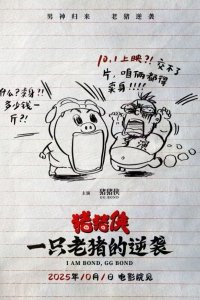 男神归来 老猪逆袭
10.1上映?! 交不了
片，咱俩都得
卖身!!!!
什么?卖身!!
多少钱一
斤?!
导演
主演 猪猪侠
GG BOND
猪猪侠
一只老猪的逆袭
I AM BOND, GG BOND
2025年10月1日 电影院见